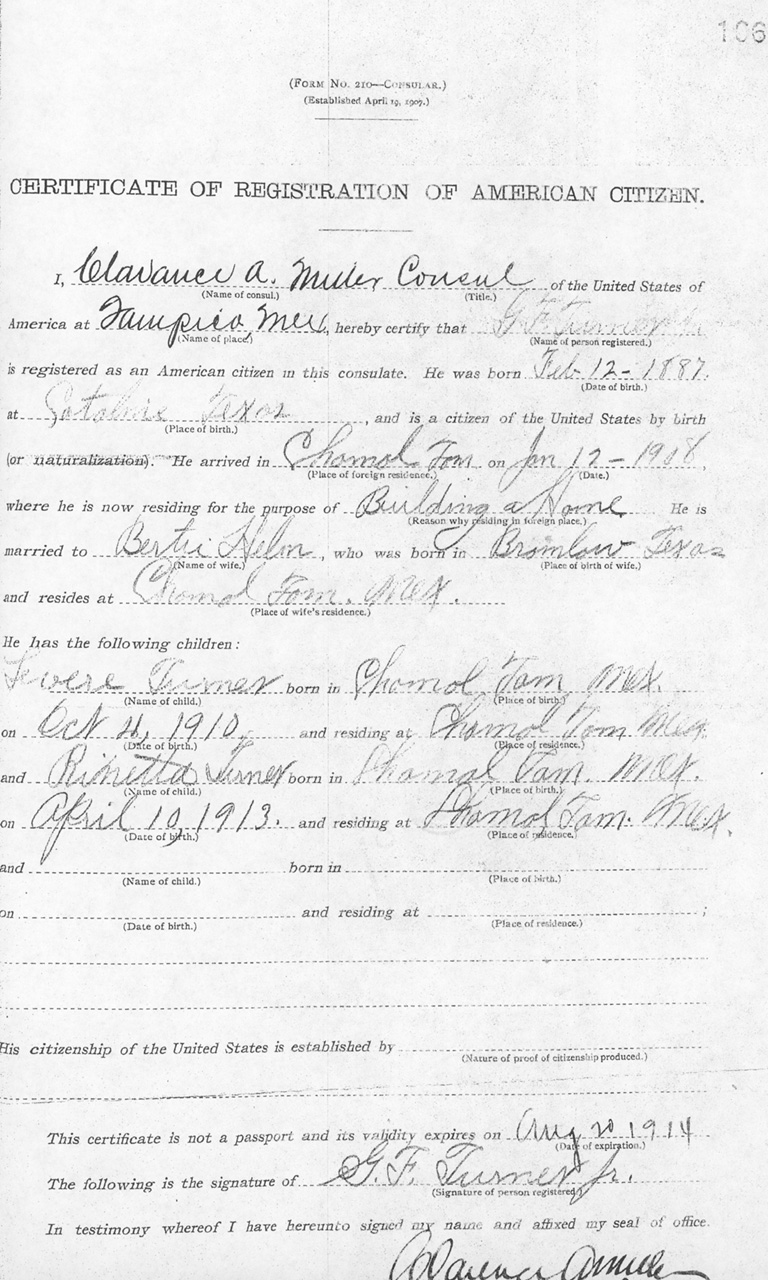 106
(Form No. 210—Consular.)
(Established April 19, 1907.)
CERTIFICATE OF REGISTRATION OF AMERICAN CITIZEN.
I, Clarance A. Miller Consul of the United States of
(Name of consul.) (Title.)
America at Tampico Mex, hereby certify that G. F. Turner Jr.
(Name of place.) (Name of person registered.)
is registered as an American citizen in this consulate. He was born Feb-12-1887.
(Date of birth.)
at Texas, and is a citizen of the United States by birth
(Place of birth.)
(or naturalization). He arrived in Chamal Tam on Jan 12-1908,
(Place of foreign residence.) (Date.)
where he is now residing for the purpose of Building a Home He is
(Reason why residing in foreign place.)
married to Bertie Helm, who was born in Texas
(Name of wife.) (Place of birth of wife.)
and resides at Chamal Tam. Mex.
(Place of wife's residence.)
He has the following children:
Turner born in Chamal Tam Mex.
(Name of child.) (Place of birth.)
on Oct 4, 1910, and residing at Chamal Tam Mex.
(Date of birth.) (Place of residence.)
and Turner born in Chamal Tam. Mex.
(Name of child.) (Place of birth.)
on April 10, 1913. and residing at Chamal Tam. Mex.
(Date of birth.) (Place of residence.)
and born in
(Name of child.) (Place of birth.)
on and residing at ;
(Date of birth.) (Place of residence.)
His citizenship of the United States is established by
(Nature of proof of citizenship produced.)
This certificate is not a passport and its validity expires on Aug 20 1914
(Date of expiration.)
The following is the signature of G. F. Turner Jr.
(Signature of person registered.)
In testimony whereof I have hereunto signed my name and affixed my seal of office.
Clarence A Miller